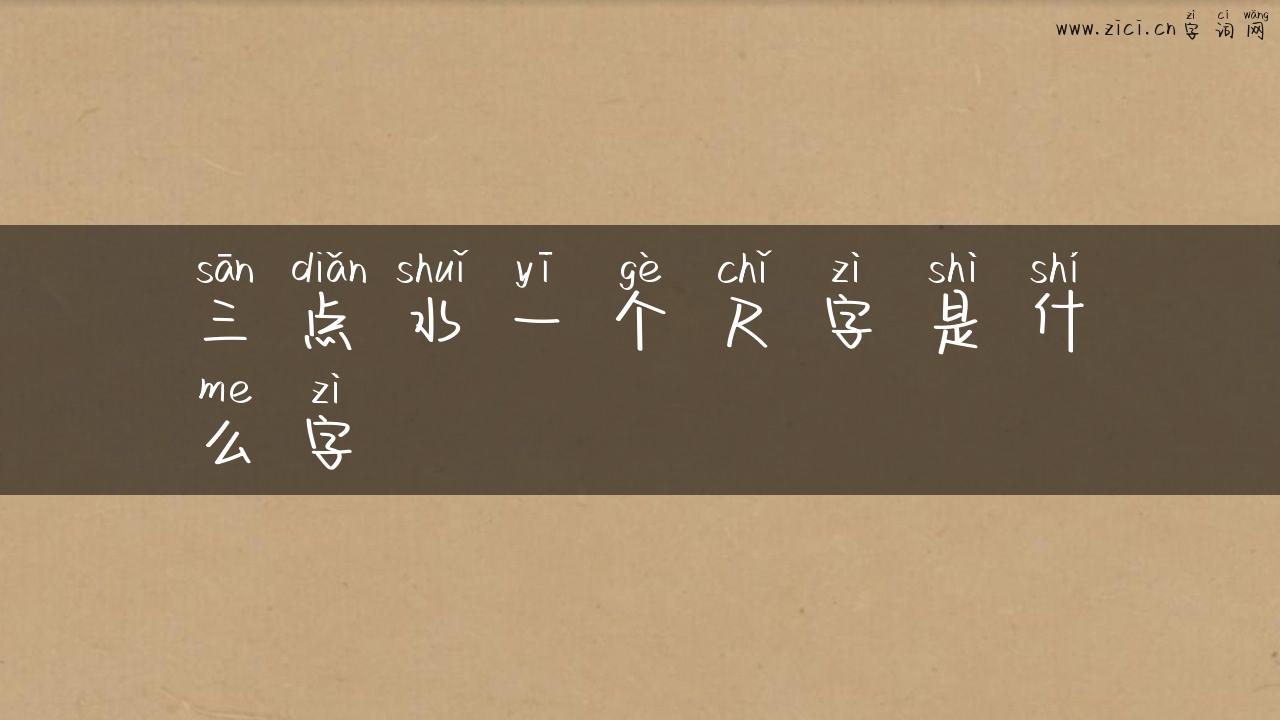 www.zici.cn字词网
zì cí wǎng
sān diǎn shuǐ yī gè chǐ zì shì shí
三点水一个尺字是什
me zì
么字